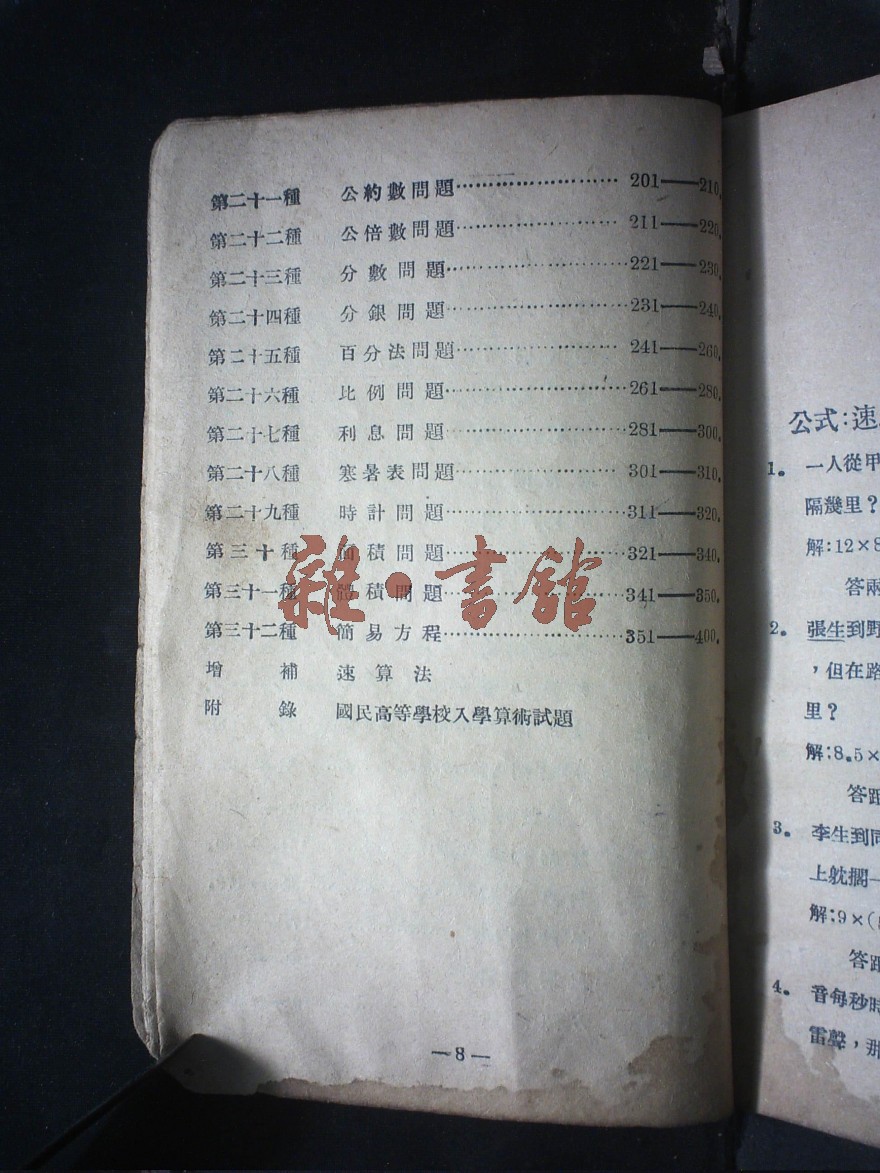 第二十一種 公約數問題……………………201——210.
第二十二種 公倍數問題……………………211——220.
第二十三種 分數問題……………………221——230.
第二十四種 分銀問題……………………231——240.
第二十五種 百分法問題……………………241——260.
第二十六種 比例問題……………………261——280.
第二十七種 利息問題……………………281——300.
第二十八種 寒暑表問題……………………301——310.
第二十九種 時計問題……………………311——320.
第三十種 面積問題……………………321——340.
第三十一種 體積問題……………………341——350.
第三十二種 簡易方程……………………351——400.
增補 速算法
附錄 國民高等學校入學算術試題
—8—
雜·書館
公式:速
1. 一人從甲
隔幾里?
解:12×8
答兩
2. 張生到野
,但在路
里?
解:8.5×
答距
3. 李生到同
上躭擱一
解:9×(
答距
4. 音每秒時
雷聲,那